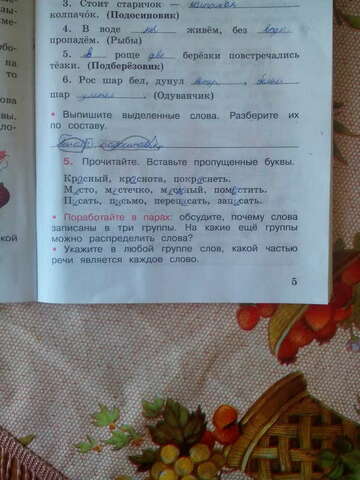 3. Стоит старичок —
колпачок. (Подосиновик)
4. В воде мы живём, без воды
пропадём. (Рыбы)
5. В роще две берёзки повстречались
тёзки. (Подберёзовик)
6. Рос шар бел, дунул ветер,
шар улетел. (Одуванчик)
• Выпишите выделенные слова. Разберите их
по составу.
5. Прочитайте. Вставьте пропущенные буквы.
Красный, краснота, покраснеть.
Место, местечко, местный, поместить.
Писать, письмо, переписать, записать.
• Поработайте в парах: обсудите, почему слова
записаны в три группы. На какие ещё группы
можно распределить слова?
• Укажите в любой группе слов, какой частью
речи является каждое слово.
5